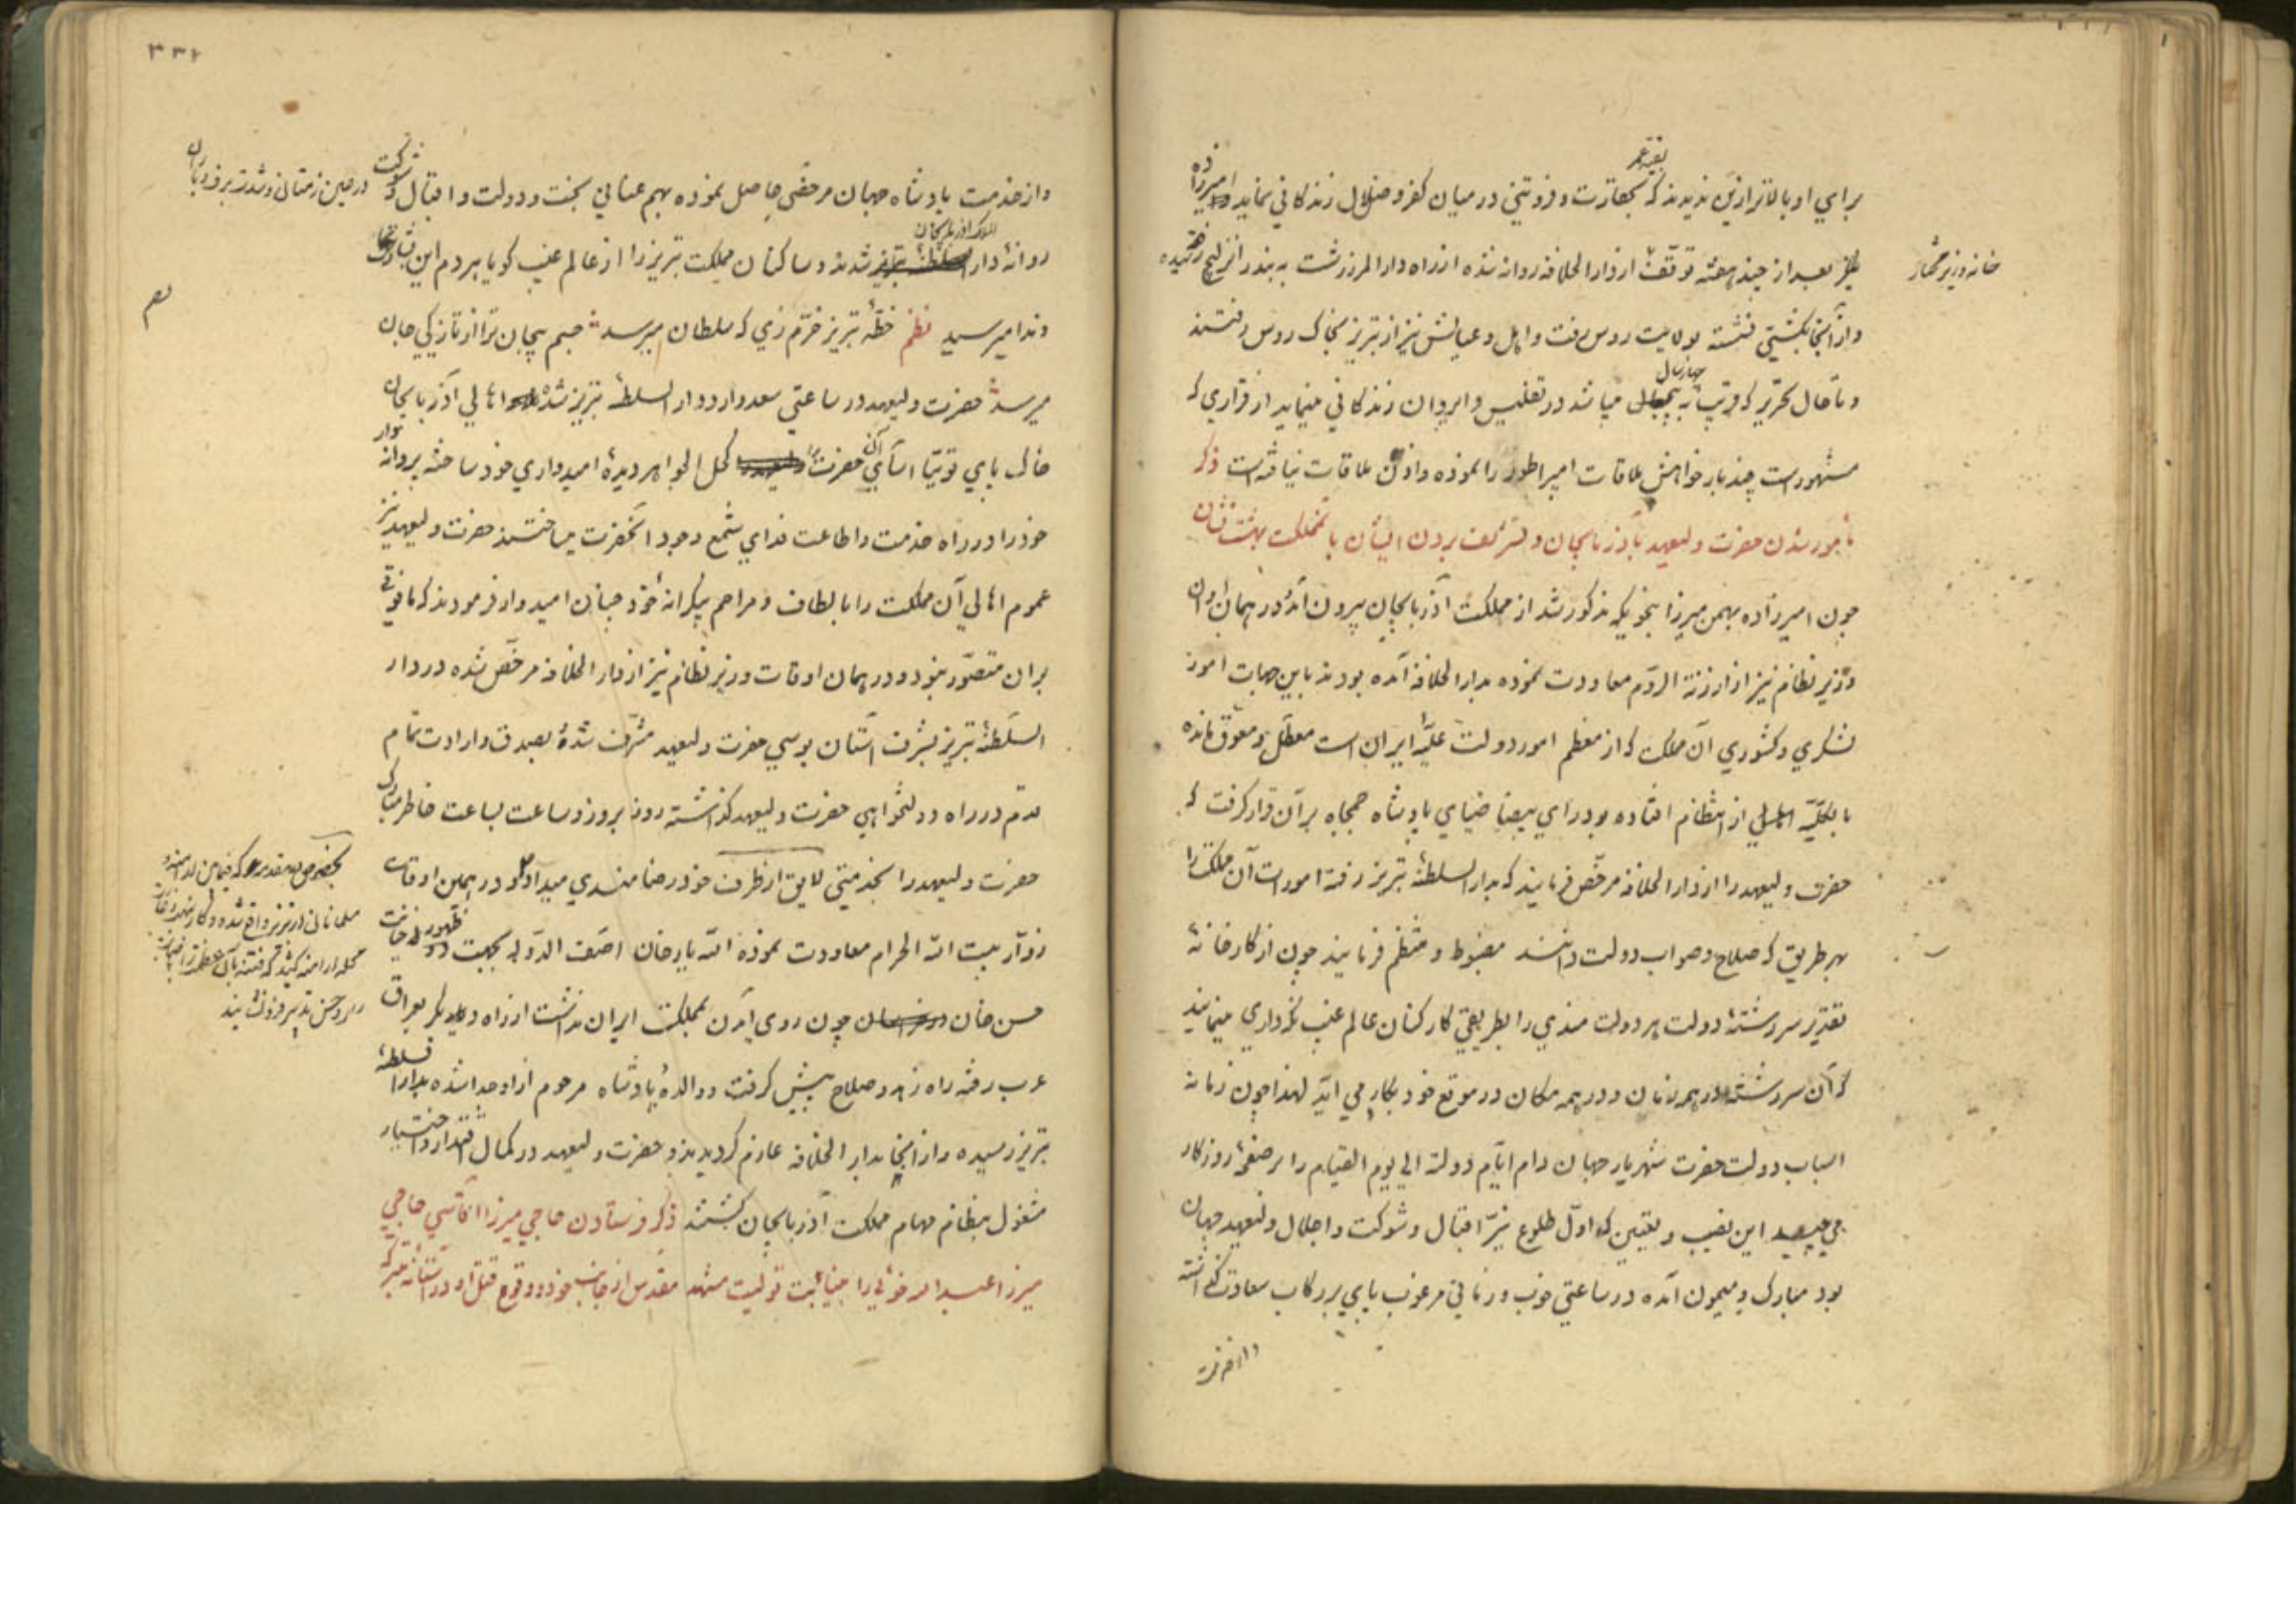 برای او بالاتر ازین ندیدند که بقیه عمر بحقارت و فروتنی در میان کفر و ضلال زندکانی نماید امیرزاده
نیز بعد از چند هفته توقف از دارالخلافه روانه شده از راه دارالمرز رشت به بندر انزلیچ رفته
خانه وزیر مختار
و از آنجا بکشتی نشسته بولایت روس رفت و اهل و عیالش نیز از تبریز بخاک روس رفتند
و تا حال تحریر که قریب به چهار سال میباشد در تفلیس و ایروان زندکانی مینماید از قراری که
مشهور است چند بار خواهش ملاقات امپراطور را نموده و اذن ملاقات نیافته است ذکر
مأمور شدن حضرت ولیعهد بآذربایجان و تشریف بردن ایشان بآنمملکت بهشت نشان
چون امیرزاده بهمن میرزا بنحویکه مذکور شد از مملکت آذربایجان بیرون آمد و در همان اوان
وزیر نظام نیز از ارزنة الروم معاودت نموده بدارالخلافه آمده بودند باین جهات امور
لشکری و کشوری آن مملکت که از معظم امور دولت علیه ایران است معطل و معوق مانده
بالکلیه از انتظام افتاده بود رای بیضا ضیای پادشاه جمجاه بر آن قرار کرفت که
حضرت ولیعهد را از دارالخلافه مرخص فرمایند که بدارالسلطنه تبریز رفته امورات آن مملکت را
بهر طریق که صلاح و صواب دولت دانند مضبوط و منتظم فرمایند چون از کارخانه
تقدیر سررشته دولت هر دولت مندی را بطریقی کارکنان عالم غیب نکرداری مینمایند
که آن سررشته در همه زمان و در همه مکان در موقع خود بکار می آید لهذا چون زمانه
اسباب دولت حضرت شهریار جهان دام ایام دولته الی یوم القیام را بر صفحه روزکار
می چید این نصیب و یقین که اول طلوع نیر اقبال و شوکت و اجلال ولیعهد جهان
بود مبارک و میمون آمده در ساعتی خوب و زمانی مرغوب پای بر رکاب سعادت کذاشته
و از خدمت
۳۳۲
و از خدمت پادشاه جهان مرخصی حاصل نموده بهم عنانی بخت و دولت و اقبال و شوکت در عین زمستان و شدت برف و باران
روانه دارالسلطنه تبریز شدند و ساکنان مملکت تبریز را از عالم غیب کویا هر دم این بشارت
و ندا میرسید نظم خطه تبریز خرم زی که سلطان میرسد جسم بیجان ترا از تازکی جان
میرسد حضرت ولیعهد در ساعتی سعد وارد دارالسلطنه تبریز شده اهالی آذربایجان
خاک پای توتیا آسای آن حضرت را کحل الجواهر دیده امیدواری خود ساخته پروانه وار
خود را در راه خدمت و اطاعت فدای شمع وجود آنحضرت میساختند حضرت ولیعهد نیز
عموم اهالی آن مملکت را بالطاف و مراحم بیکرانه خود چنان امیدوار فرمودند که مافوقی
بر آن متصور نبود و در همان اوقات وزیر نظام نیز از دارالخلافه مرخص شده در دار
السلطنه تبریز بشرف آستان بوسی حضرت ولیعهد مشرف شده بصدق و ارادت تمام
قدم در راه دولتخواهی حضرت ولیعهد کذاشته روز بروز و ساعت بساعت خاطر مبارک
حضرت ولیعهد را بخدمتی لایق از طرف خود رضامندی میداد و در همین اوقات
زوار بیت الله الحرام معاودت نموده الله یار خان آصف الدوله بجهت ظهور خیانت
حسن خان چون روی آمدن بمملکت ایران نداشت از راه دیگر بعراق
عرب رفته راه زهد و صلاح پیش کرفت و والده پادشاه مرحوم از او جدا شده بدارالسلطنه
تبریز رسیده و از آنجا بدارالخلافه عازم کردیدند و حضرت ولیعهد در کمال اقتدار و اختیار
مشغول بنظام مهام مملکت آذربایجان کشتند ذکر فرستادن حاجی میرزا آقاسی حاجی
میرزا عبدالله خوئی را بنیابت تولیت مشهد مقدس از جانب خود و وقوع قتل او در آستانه متبرکه